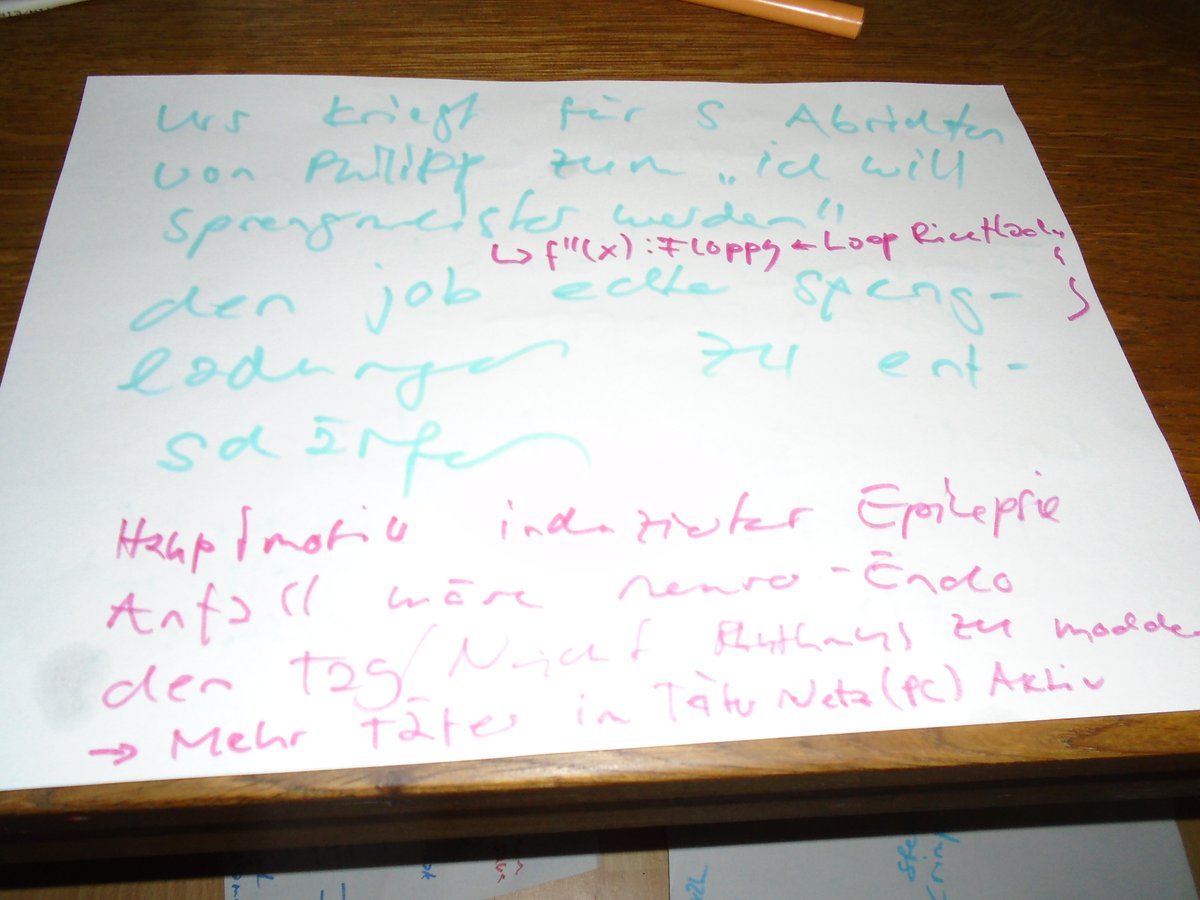 Urs kriegt für S Abrichten
von Philipp zum „ich will
Sprengmeister werden"
↳ f"(x): Floppy ← Loop
den job echte Spreng-
ladungen zu ent-
schärfen
Hauptmotiv induzierter Epilepsie
Anfall wäre neuro-Endo
den Tag/Nacht Rhythmus zu modden
→ Mehr Täter in Täter Netz (PC) Aktiv